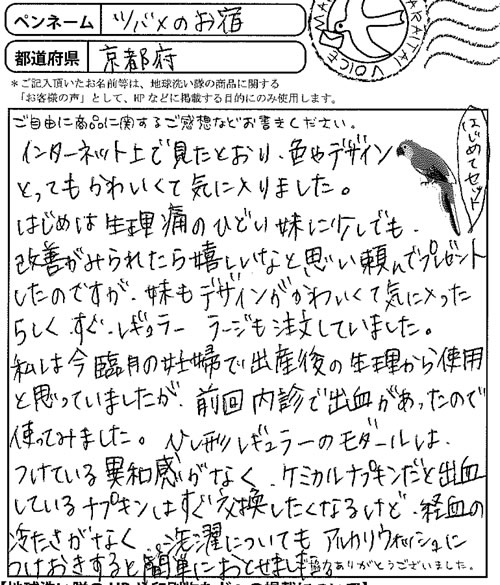 ペンネーム ツバメのお宿
都道府県 京都府
ARATAI VOICE
＊ご記入頂いたお名前等は、地球洗い隊の商品に関する
「お客様の声」として、HPなどに掲載する目的にのみ使用します。
ご自由に商品に関するご感想などお書きください。
はじめてセット
インターネット上で見たとおり、色やデザイン
とってもかわいくて気に入りました。
はじめは生理痛のひどい妹に少しでも、
改善がみられたら嬉しいなと思い頼んでプレゼント
したのですが、妹もデザインがかわいくて気に入った
らしく、すぐ、レギュラー ラージも注文していました。
私は今臨月の妊婦で出産後の生理から使用
と思っていましたが、前回内診で出血があったので
使ってみました。ひし形レギュラーのモダールは、
つけている異和感がなく、ケミカルナプキンだと出血
しているナプキンはすぐ交換したくなるけど、経血の
冷たさがなく、洗濯についてもアルカリウォッシュに
つけおきすると簡単におとせました。
ご協力ありがとうございました。